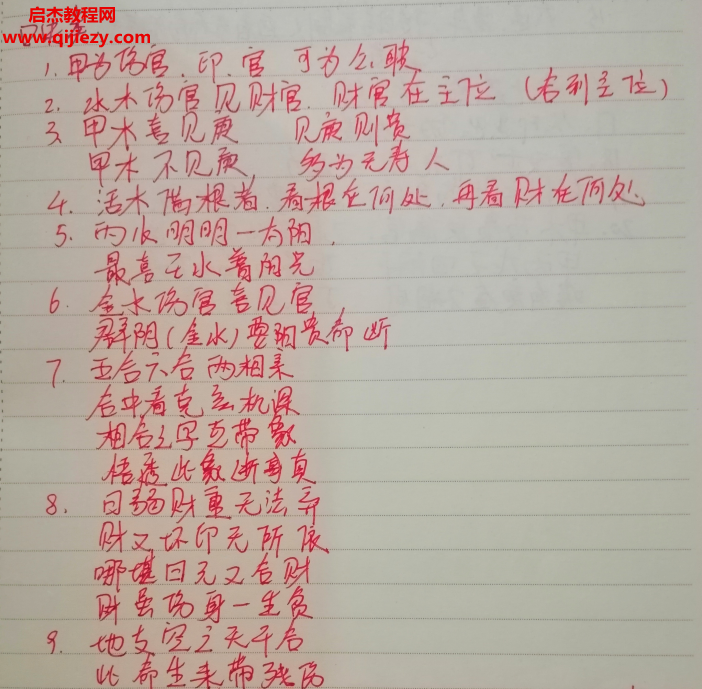 启杰教程网
www.qijiezy.com
口诀
1. 甲为伤官、印、官 可为公职
2. 水木伤官见财官. 财官在主位 (合到主位)
3、甲木喜见庚 见庚则贵
甲木不见庚, 多为无寿人
4. 活木带根者. 看根在何处. 再看财在何处
5. 丙火明明一太阳.
最喜壬水着阳光
6. 金水伤官喜见官
群阴(金水)要阳贵命断
7. 五合六合两相亲
合中看克玄机深
相合之字克带象
悟透此象断事真
8. 日弱财重无法弃
财又坏印无所依
哪堪日元又合财
财虽伤身一生负
9. 地支空亡天干合
此命生来带残伤